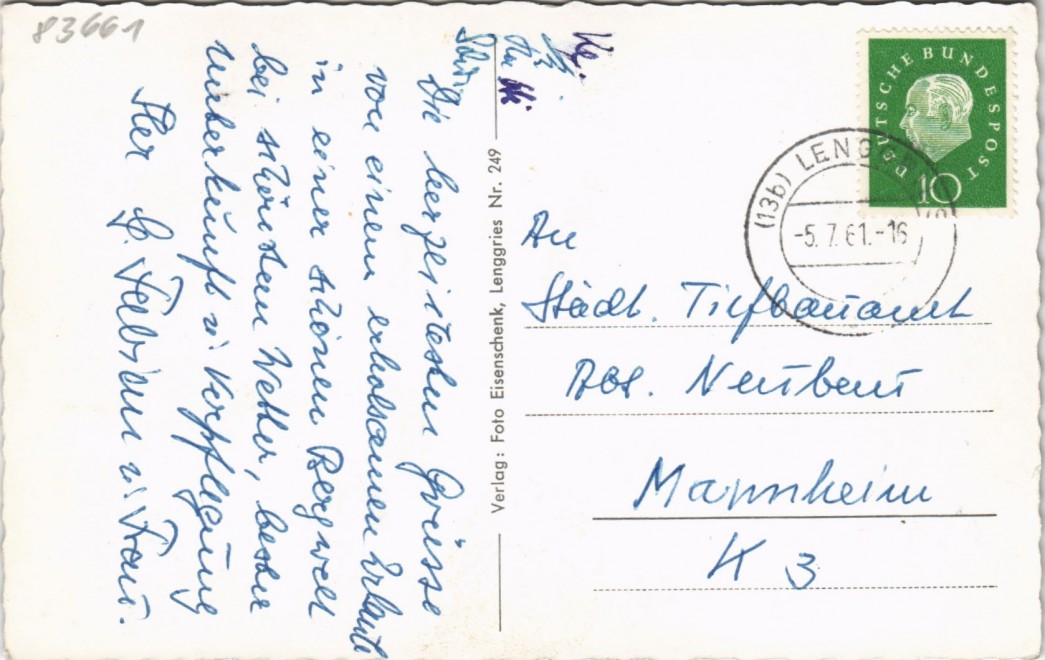 83661
Die herzlichsten Grüsse
von einem erholsamen Urlaub
in einer schönen Bergwelt
bei schönstem Wetter, bester
Unterkunft u. Verpflegung
Ihr
u. Frau.
Verlag: Foto Eisenschenk, Lenggries Nr. 249
DEUTSCHE BUNDESPOST
10
(13b) LENGGRIES
-5.7.61.-16
An
Städt. Tiefbauamt
Abt. Neubau
Mannheim
K 3